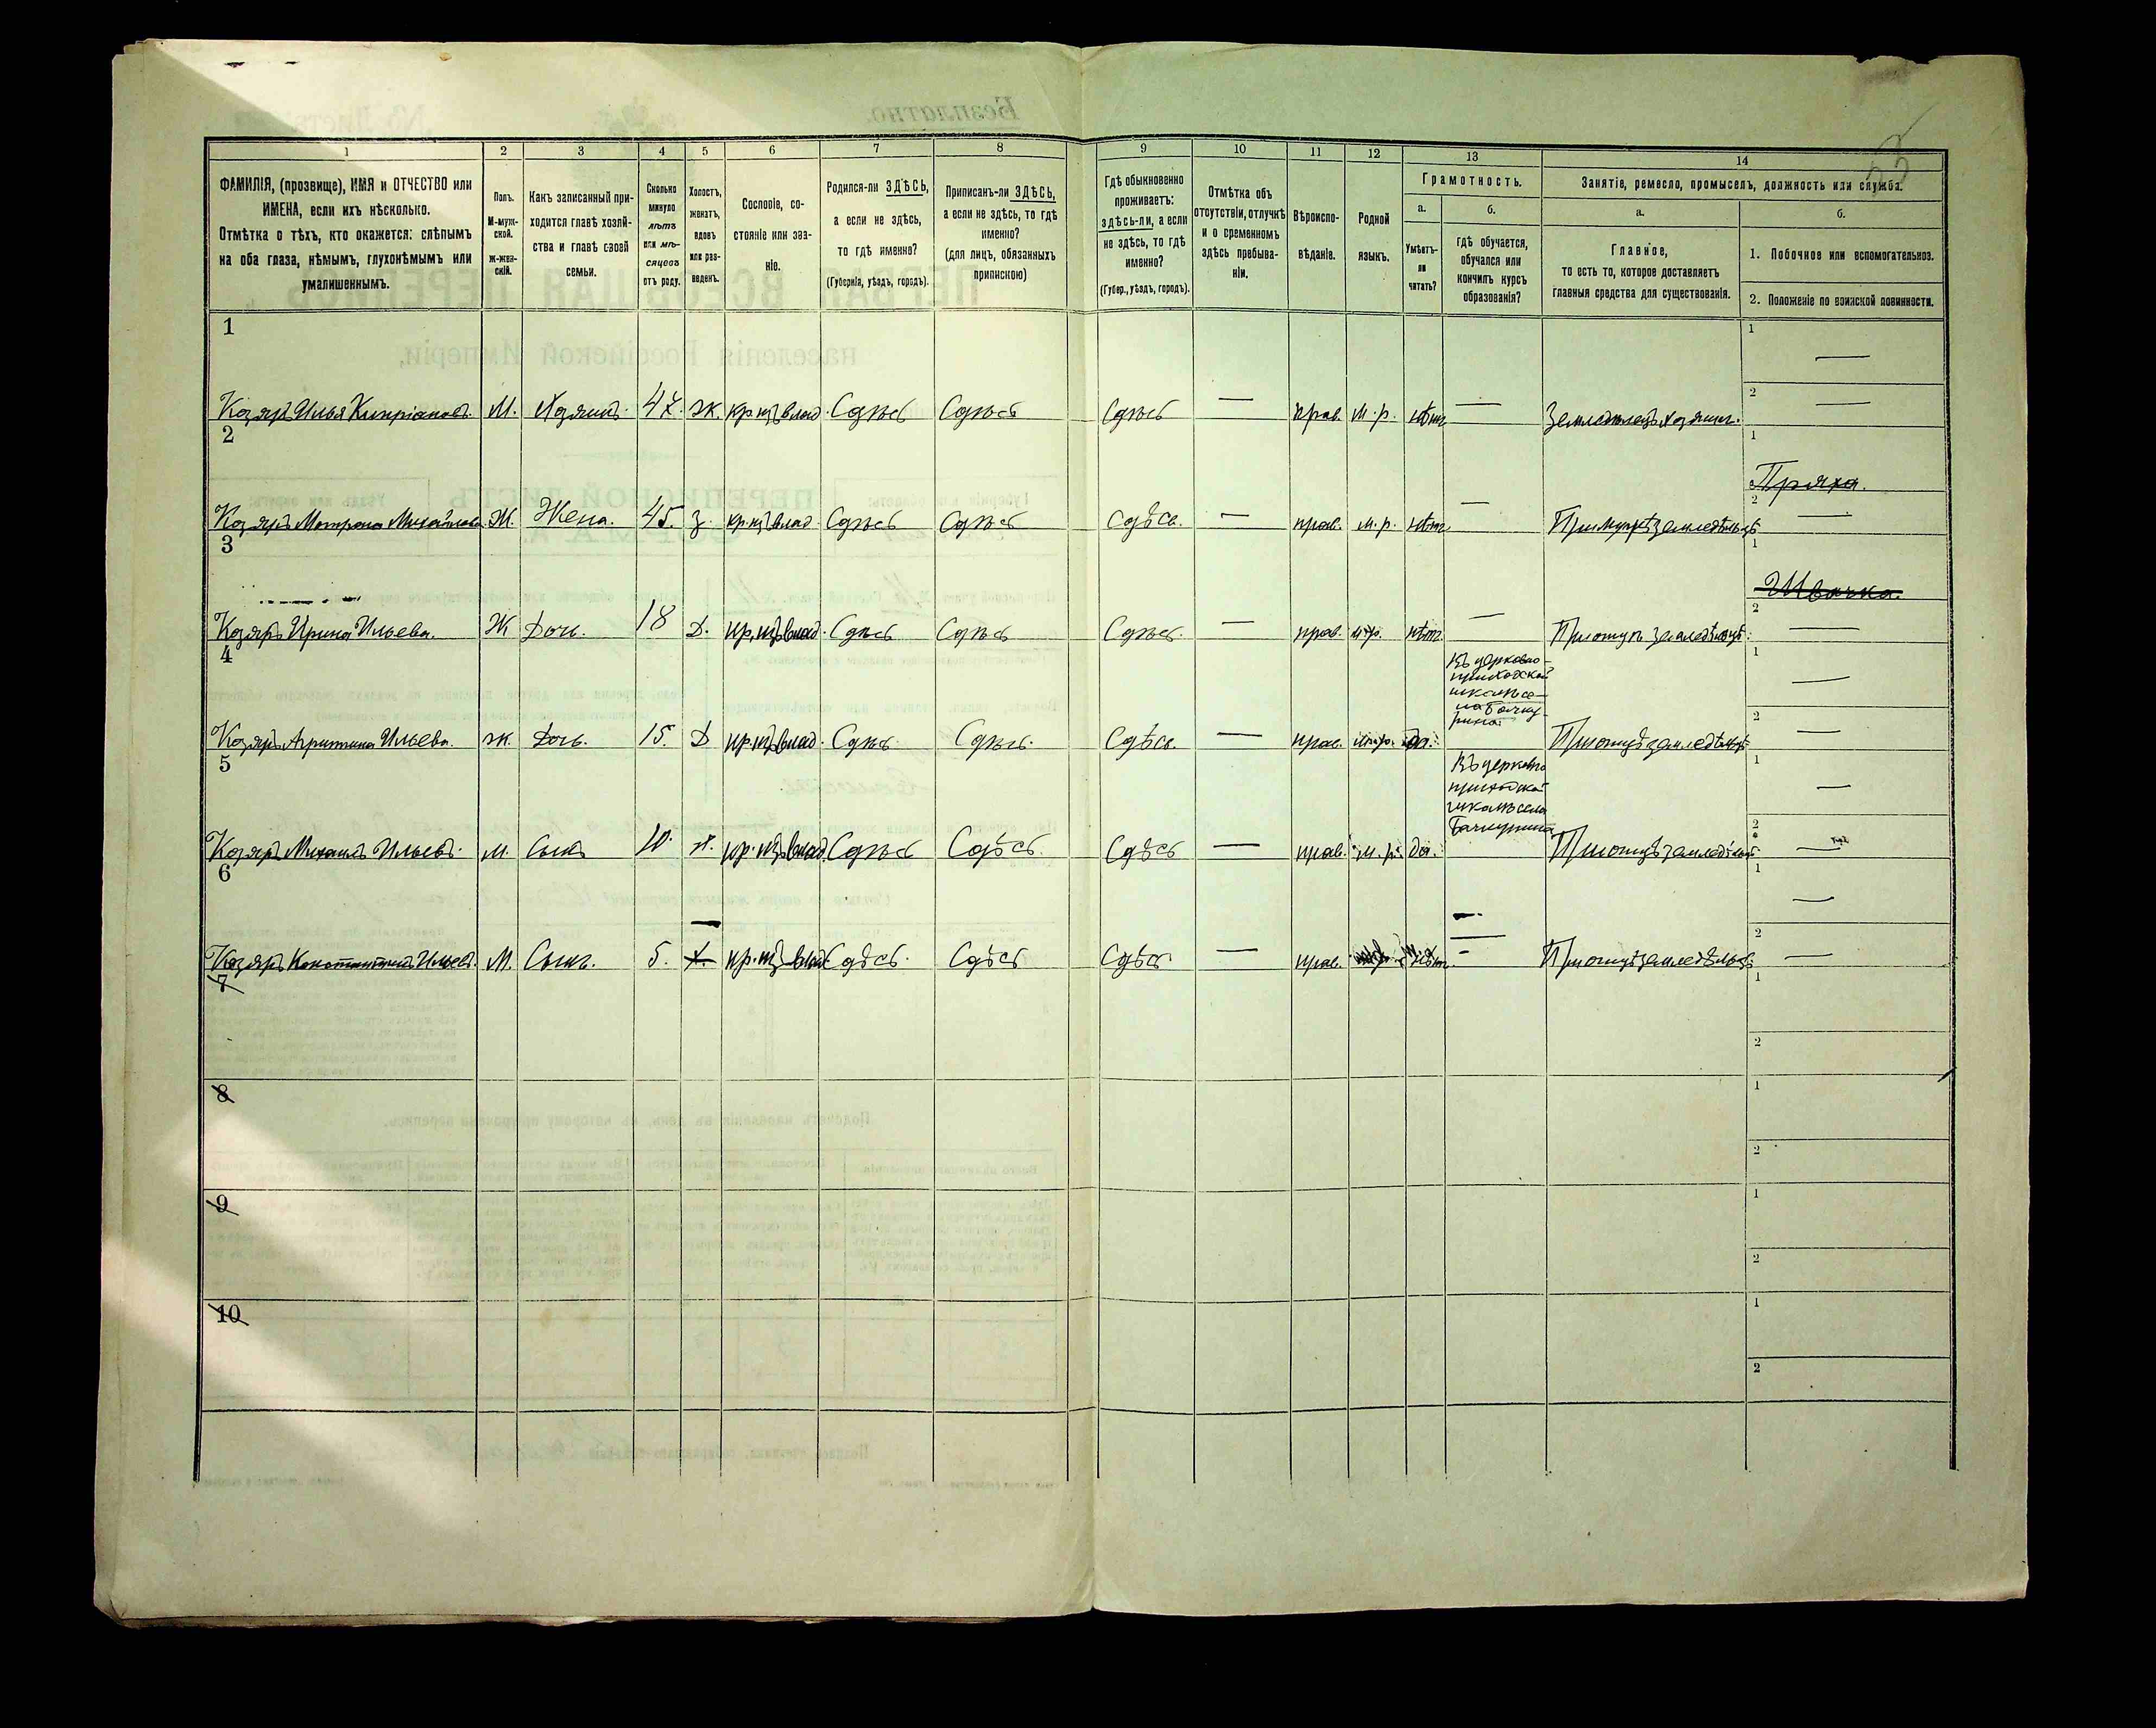 53
1 2 3 4 5 6 7 8 9 10 11 12 13 14
ФАМИЛІЯ, (прозвище), ИМЯ и ОТЧЕСТВО или
ИМЕНА, если ихъ нѣсколько.
Отмѣтка о тѣхъ, кто окажется: слѣпымъ
на оба глаза, нѣмымъ, глухонѣмымъ или
умалишеннымъ.
Полъ.
М-муж-
ской.
Ж-жен-
скій.
Какъ записанный при-
ходится главѣ хозяй-
ства и главѣ своей
семьи.
Сколько
минуло
лѣтъ
или мѣ-
сяцевъ
отъ роду.
Холостъ,
женатъ,
вдовъ
или раз-
веденъ.
Сословіе, со-
стояніе или зва-
ніе.
Родился-ли ЗДѢСЬ,
а если не здѣсь,
то гдѣ именно?
(Губернія, уѣздъ, городъ).
Приписанъ-ли ЗДѢСЬ,
а если не здѣсь, то гдѣ
именно?
(для лицъ, обязанныхъ
припискою)
Гдѣ обыкновенно
проживаетъ:
здѣсь-ли, а если
не здѣсь, то гдѣ
именно?
(Губер., уѣздъ, городъ).
Отмѣтка объ
отсутствіи, отлучкѣ
и о временномъ
здѣсь пребыва-
ніи.
Вѣроиспо-
вѣданіе.
Родной
языкъ.
Грамотность.
а.
Умѣетъ-
ли
читать?
б.
гдѣ обучается,
обучался или
кончилъ курсъ
образованія?
Занятіе, ремесло, промыселъ, должность или служба.
а.
Главное,
то есть то, которое доставляетъ
главныя средства для существованія.
б.
1. Побочное или вспомогательное.
2. Положеніе по воинской повинности.
1
Козяръ Илья Кипріановъ. М. Хозяинъ. 47. ж. кр. изъ влад. Сдѣсь Сдѣсь Сдѣсь — прав. м.р. нѣтъ — Земледѣлецъ хозяинъ. 1 — 2 —
2
Козяръ Матрона Михайлова Ж. Жена. 45. з. кр. изъ влад. Сдѣсь Сдѣсь Сдѣсь. — прав. м.р. нѣтъ — При мужѣ земледѣльцѣ 1 Пряха. 2 —
3
Козяръ Ирина Ильева. Ж Дочь. 18 Д. кр. изъ влад. Сдѣсь Сдѣсь Сдѣсь. — прав. м.р. нѣтъ — При отцѣ земледѣльцѣ. 1 Швачка. 2 —
4
Въ церковно-
приходской
школѣ се-
ла
Козяръ Ильева. ж. Дочь. 15. Д кр. изъ влад. Сдѣс. Сдѣсь. Сдѣсь. — прав. м.р. да. При отцѣ земледѣльцѣ 1 — 2 —
5
Въ церковно
приходской
школѣ села
Козяръ Михаилъ Ильевъ. М. Сынъ 10. х. кр. изъ влад. Сдѣсь Сдѣсь. Сдѣсь — прав. м.р. да. При отцѣ земледѣльцѣ 1 — 2 —
6
Козяръ Константинъ Ильев. М. Сынъ. 5. х. кр. изъ влад Сдѣсь. Сдѣсь Сдѣсь — прав. нѣтъ — При отцѣ земледѣльцѣ 1 — 2 —
7 1
2
8 1
2
9 1
2
10 1
2